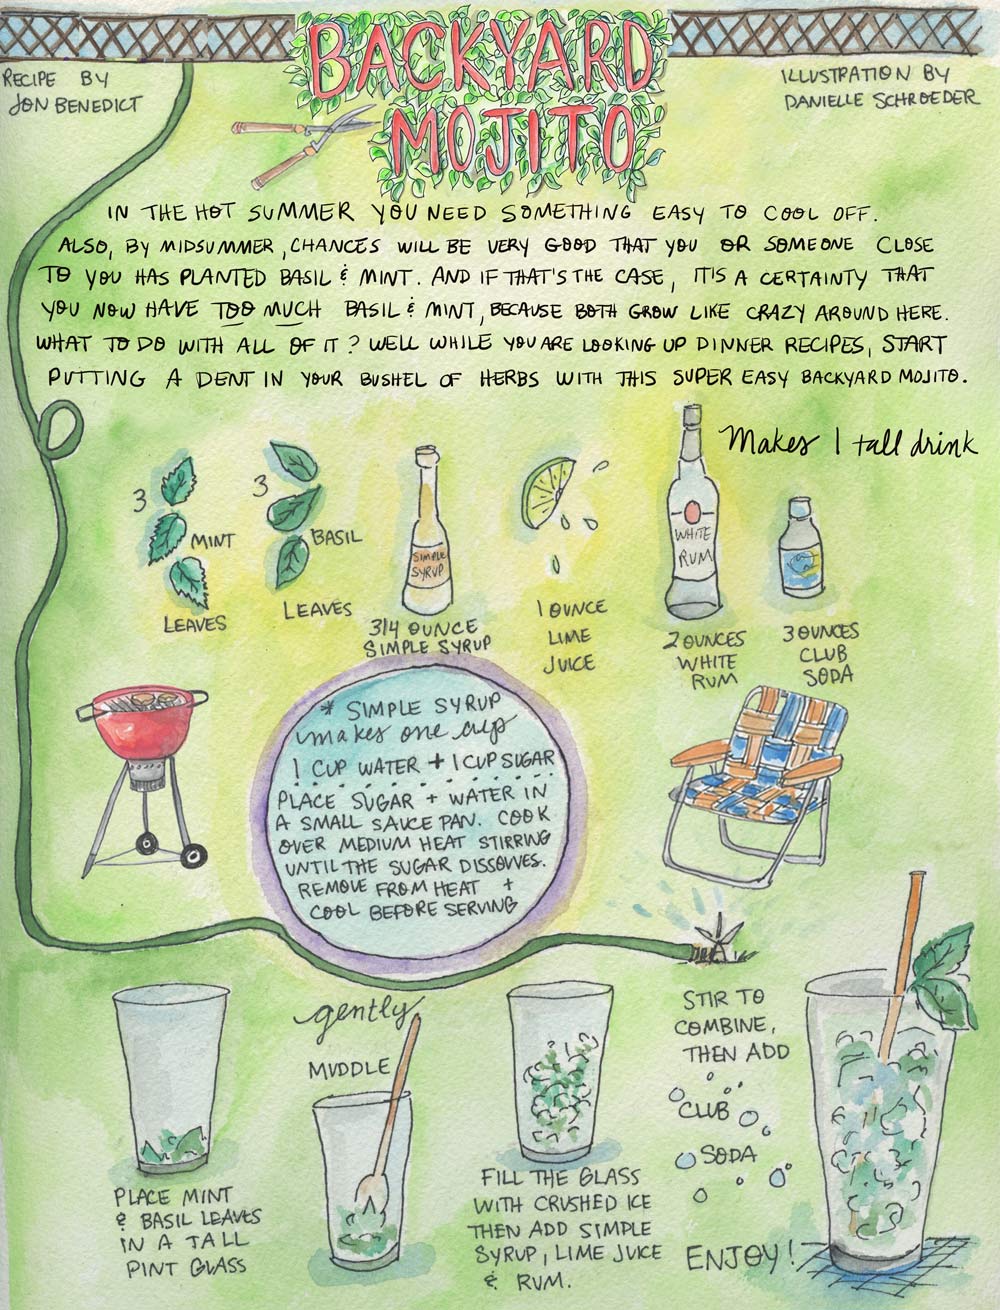 BACKYARD
MOJITO
RECIPE BY
JON BENEDICT
ILLUSTRATION BY
DANIELLE SCHROEDER
IN THE HOT SUMMER YOU NEED SOMETHING EASY TO COOL OFF.
ALSO, BY MIDSUMMER, CHANCES WILL BE VERY GOOD THAT YOU OR SOMEONE CLOSE
TO YOU HAS PLANTED BASIL & MINT. AND IF THAT'S THE CASE, IT'S A CERTAINTY THAT
YOU NOW HAVE TOO MUCH BASIL & MINT, BECAUSE BOTH GROW LIKE CRAZY AROUND HERE.
WHAT TO DO WITH ALL OF IT? WELL WHILE YOU ARE LOOKING UP DINNER RECIPES, START
PUTTING A DENT IN YOUR BUSHEL OF HERBS WITH THIS SUPER EASY BACKYARD MOJITO.
Makes 1 tall drink
3
MINT
LEAVES
3
BASIL
LEAVES
SIMPLE
SYRUP
3/4 OUNCE
SIMPLE SYRUP
1 OUNCE
LIME
JUICE
WHITE
RUM
2 OUNCES
WHITE
RUM
3 OUNCES
CLUB
SODA
* SIMPLE SYRUP
makes one cup
1 CUP WATER + 1 CUP SUGAR
PLACE SUGAR + WATER IN
A SMALL SAUCE PAN. COOK
OVER MEDIUM HEAT STIRRING
UNTIL THE SUGAR DISSOLVES.
REMOVE FROM HEAT +
COOL BEFORE SERVING
PLACE MINT
& BASIL LEAVES
IN A TALL
PINT GLASS
gently
MUDDLE
FILL THE GLASS
WITH CRUSHED ICE
THEN ADD SIMPLE
SYRUP, LIME JUICE
& RUM.
STIR TO
COMBINE,
THEN ADD
CLUB
SODA
ENJOY!